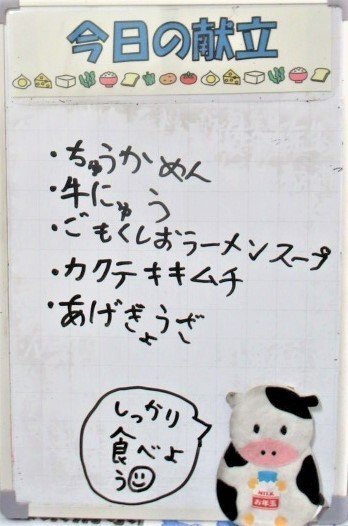 今日の献立
・ちゅうかめん
・牛にゅう
・ごもくしおラーメンスープ
・カクテキキムチ
・あげぎょうざ
しっかり
食べよ
う
MILK
お年玉